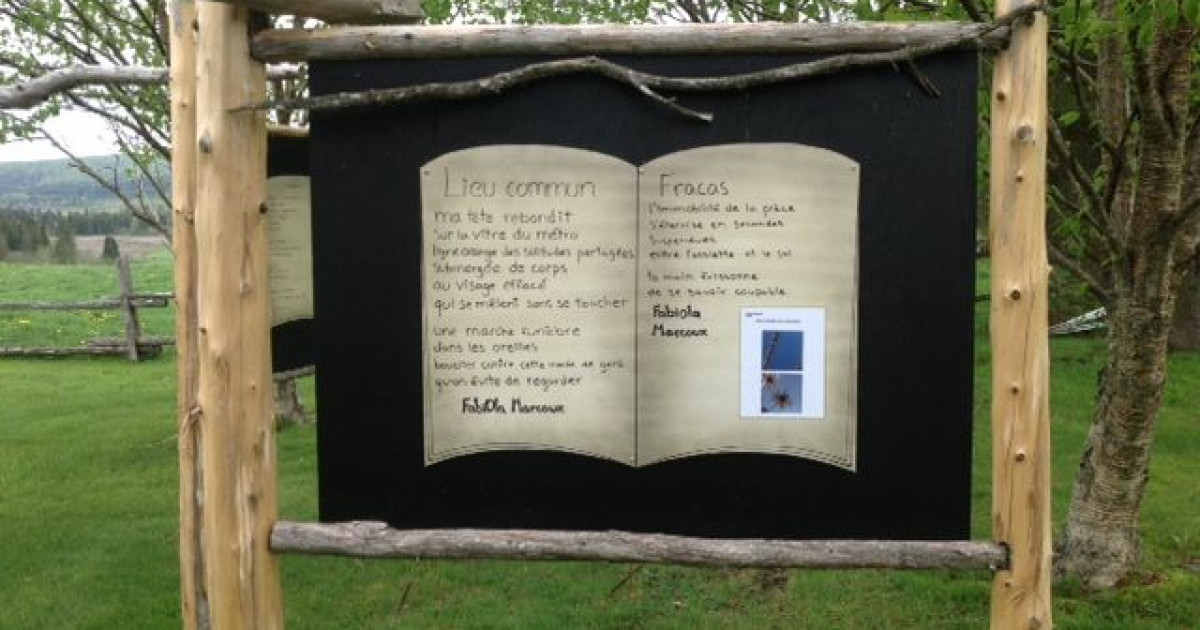 Lieu commun
ma tête rebondit
sur la vitre du métro
ligne orange des solitudes partagées
submergée de corps
au visage effacé
qui se mêlent sans se toucher
une marche funèbre
dans les oreilles
contre cette masse de gens
qu'on évite de regarder
Fabiola Marcoux
Fracas
l'immobilité de la pièce
s'éternise en secondes
suspendues
entre l'assiette et le sol
ta main frissonne
de se savoir coupable
Fabiola
Marcoux